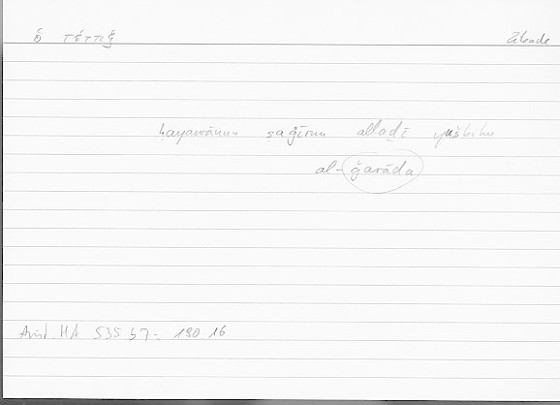 ὁ τέττιξ Zikade
ḥayawānun ṣaġīrun alladī yušbihu
al-ǧarāda
Arist. HA 535 b7 = 190 16